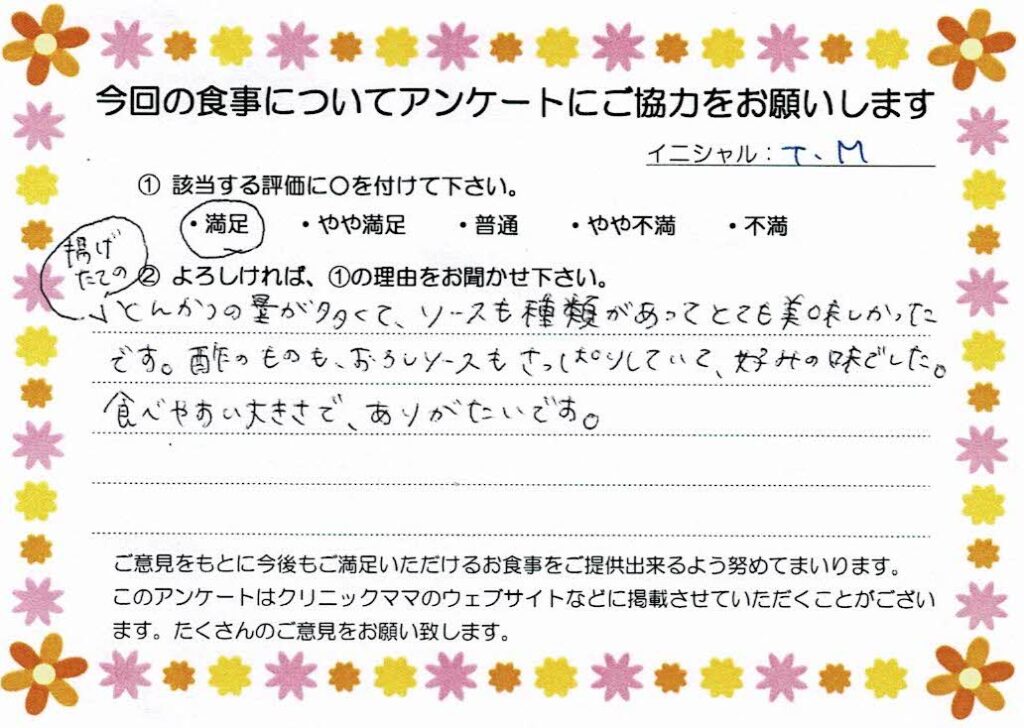 今回の食事についてアンケートにご協力をお願いします
イニシャル：T、M
① 該当する評価に〇を付けて下さい。
・満足 ・やや満足 ・普通 ・やや不満 ・不満
② よろしければ、①の理由をお聞かせ下さい。
揚げ
たての
とんかつの量が多くて、ソースも種類があってとても美味しかった
です。酢のものも、おろしソースもさっぱりしていて、好みの味でした。
食べやすい大きさで、ありがたいです。
ご意見をもとに今後もご満足いただけるお食事をご提供出来るよう努めてまいります。
このアンケートはクリニックママのウェブサイトなどに掲載させていただくことがござい
ます。たくさんのご意見をお願い致します。